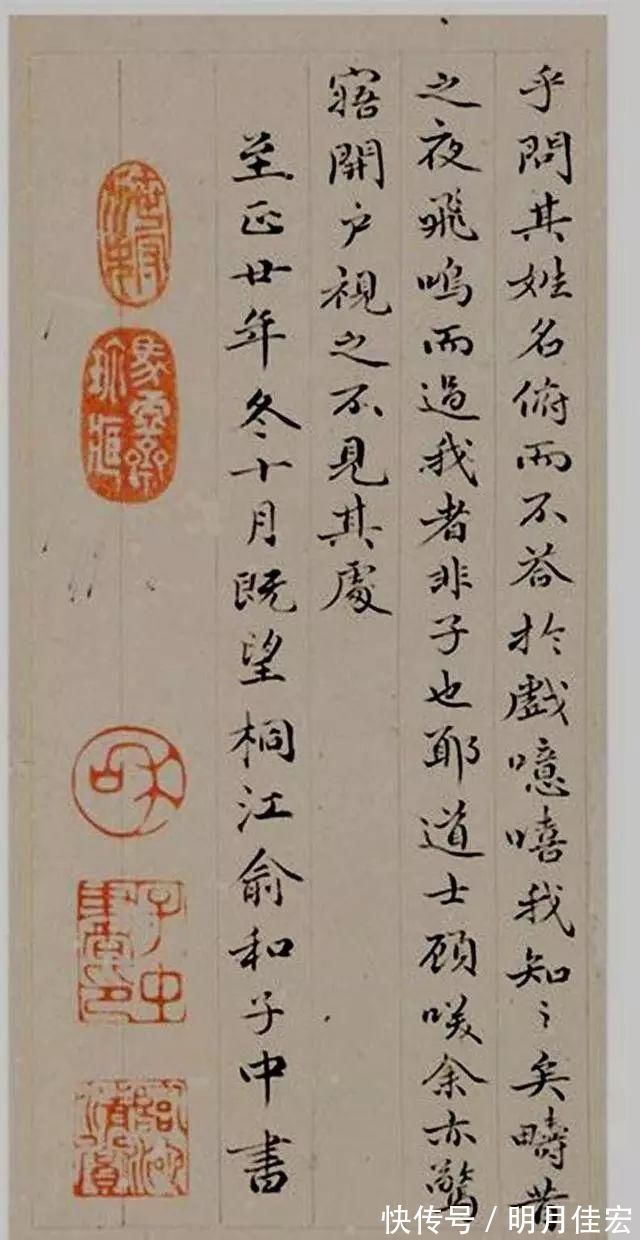 乎問其姓名俯而不荅於戲噫嘻我知〻矣疇昔
之夜飛鳴而過我者非子也耶道士顾咲余亦驚
寤開户視之不見其處
至正廿年冬十月既望桐江俞和子中書
和
子中
快传号 / 明月佳宏